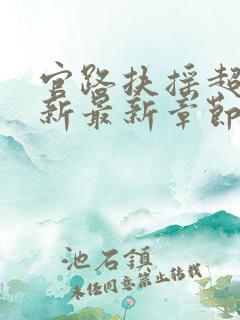 官路扶摇超
新最新章節
池石鎮
未经同意禁止转载